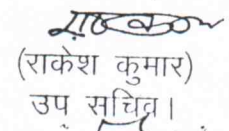 (राकेश कुमार)
उप सचिव।